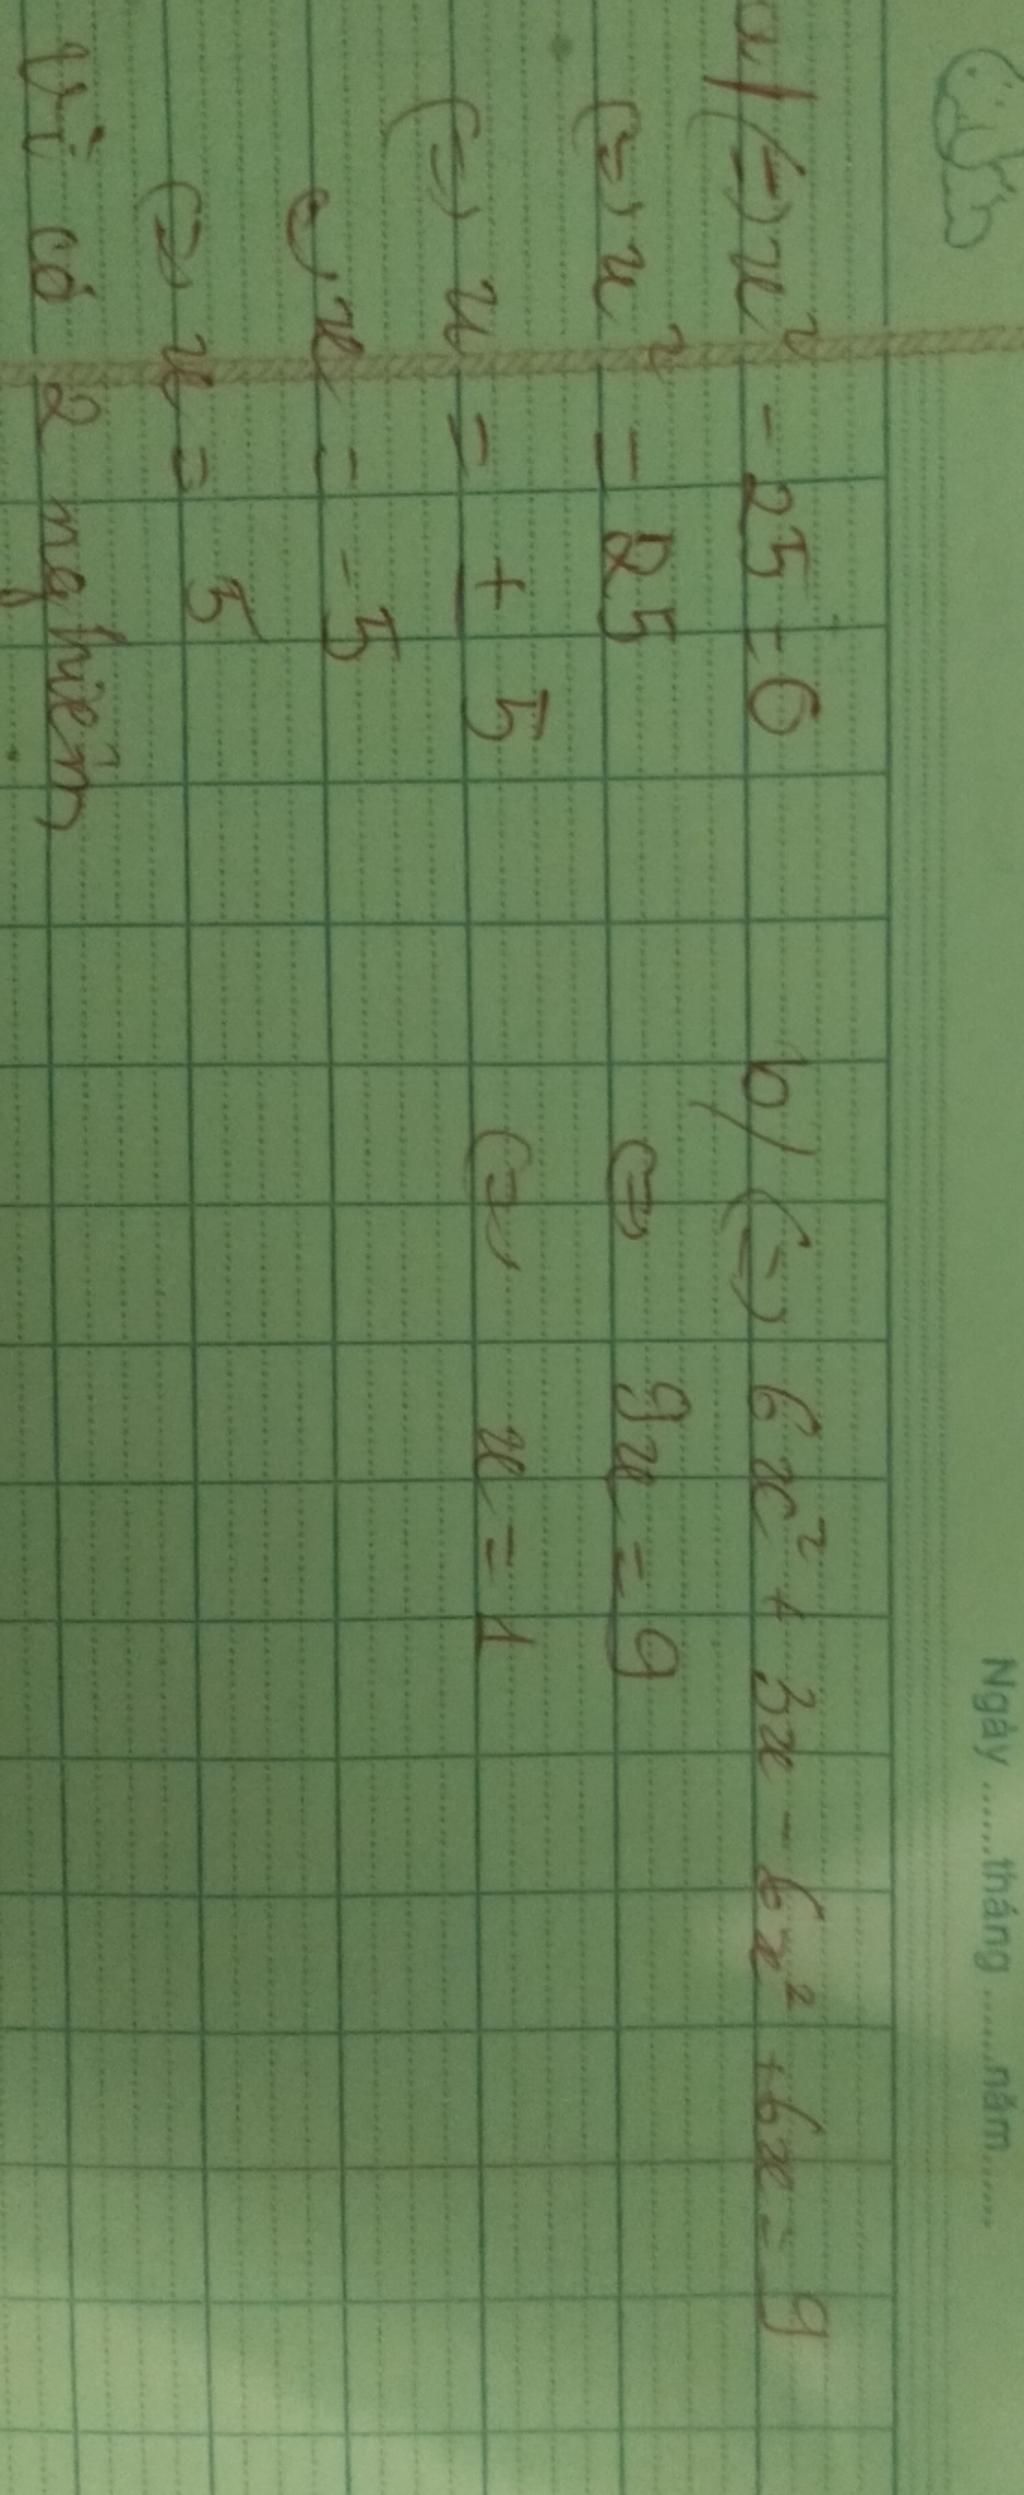 Ngày ......tháng ......năm......
a/ (=) x² - 25 = 0
(=) x² = 25
(=) x = ± 5
(=) x = -5
(=) x = 5
Vì có 2 nghiệm
b/ (=) 6x² + 3x - 6x² + 6x = 9
(=) 9x = 9
(=) x = 1